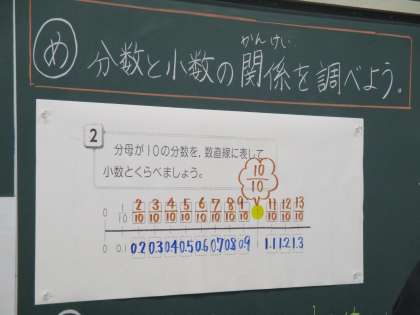 め 分数と小数の関係を調べよう。
かんけい
2
分母が10の分数を、数直線に表して
小数とくらべましょう。
10/10
0 1/10 2/10 3/10 4/10 5/10 6/10 7/10 8/10 9/10 1 11/10 12/10 13/10
0 0.1 0.2 0.3 0.4 0.5 0.6 0.7 0.8 0.9 1 1.1 1.2 1.3